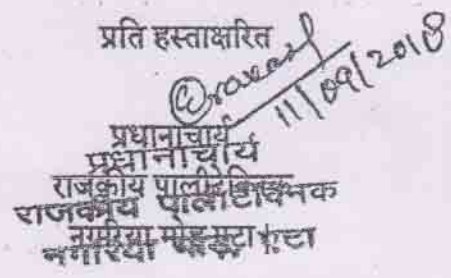 प्रति हस्ताक्षरित
11/09/2018
प्रधानाचार्य
प्रधानाचार्य
राजकीय पालीटेक्निक
राजकीय पालीटेक्निक
नगरिया मोड़ एटा
नगरिया मोड़ एटा